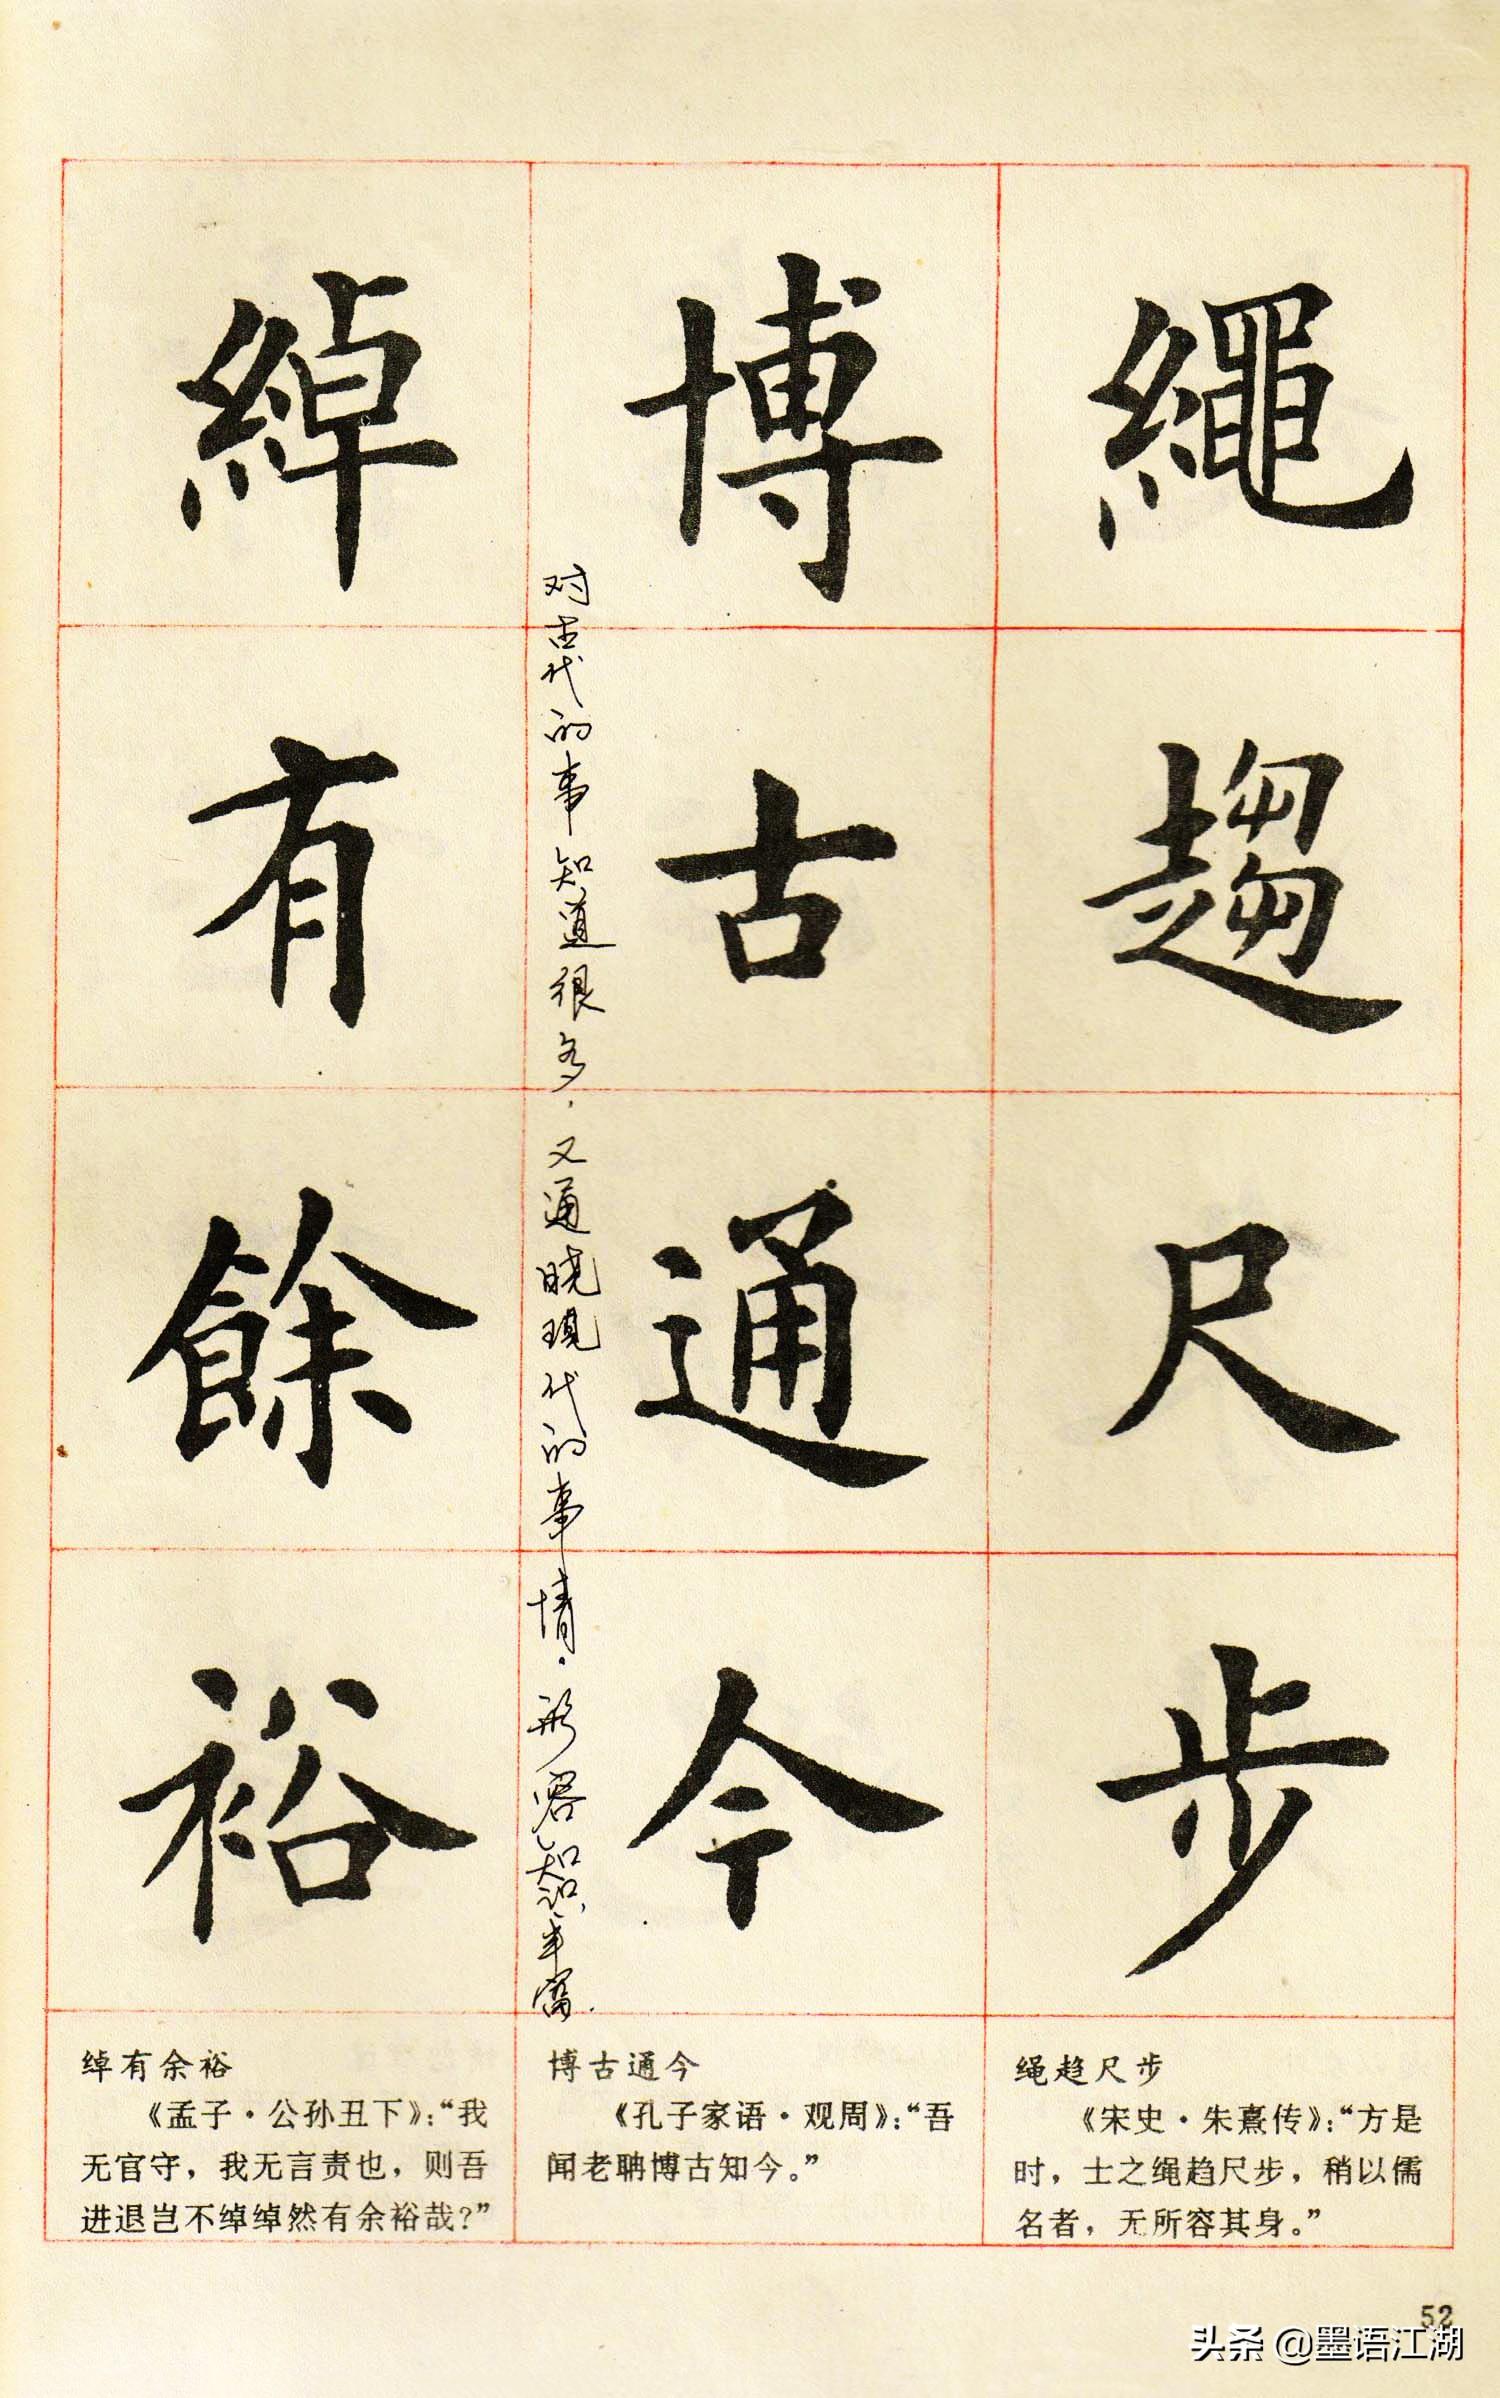 繩趨尺步
博古通今
对古代的事知道很多，又通晓现代的事情。形容知识丰富.
綽有餘裕
绳趋尺步
《宋史·朱熹传》：“方是
时，士之绳趋尺步，稍以儒
名者，无所容其身。”
博古通今
《孔子家语·观周》：“吾
闻老聃博古知今。”
绰有余裕
《孟子·公孙丑下》：“我
无官守，我无言责也，则吾
进退岂不绰绰然有余裕哉？”
52
头条 @墨语江湖